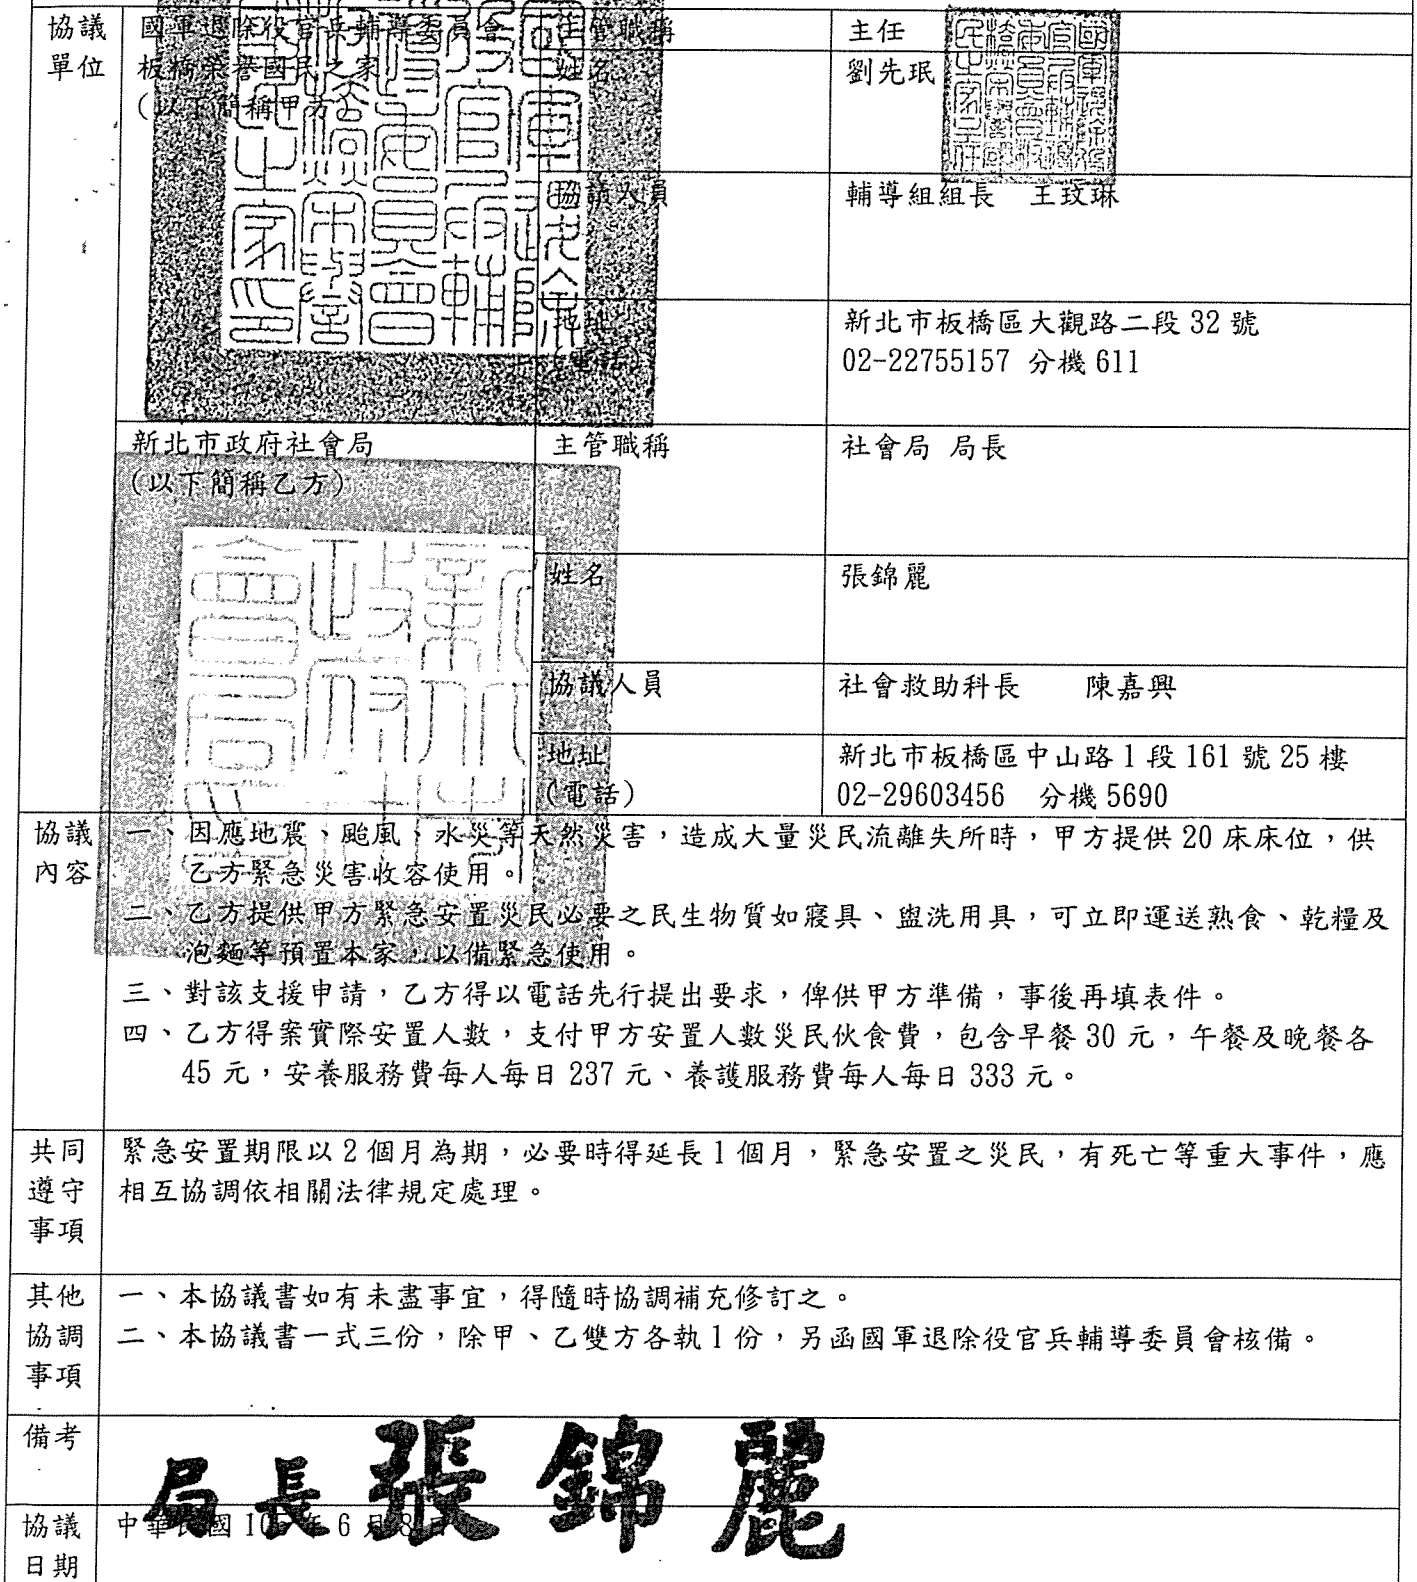 協議單位
國軍退除役官兵輔導委員會
板橋榮譽國民之家
(以下簡稱甲方)
主管職稱
主任
姓名
劉先珉
協議人員
輔導組組長 王玟琳
地址
(電話)
新北市板橋區大觀路二段 32 號
02-22755157 分機 611
新北市政府社會局
(以下簡稱乙方)
主管職稱
社會局 局長
姓名
張錦麗
協議人員
社會救助科長 陳嘉興
地址
(電話)
新北市板橋區中山路 1 段 161 號 25 樓
02-29603456 分機 5690
協議
內容
一、因應地震、颱風、水災等天然災害,造成大量災民流離失所時,甲方提供 20 床床位,供
乙方緊急災害收容使用。
二、乙方提供甲方緊急安置災民必要之民生物質如寢具、盥洗用具,可立即運送熟食、乾糧及
泡麵等預置本家,以備緊急使用。
三、對該支援申請,乙方得以電話先行提出要求,俾供甲方準備,事後再填表件。
四、乙方得案實際安置人數,支付甲方安置人數災民伙食費,包含早餐 30 元,午餐及晚餐各
45 元,安養服務費每人每日 237 元、養護服務費每人每日 333 元。
共同
遵守
事項
緊急安置期限以 2 個月為期,必要時得延長 1 個月,緊急安置之災民,有死亡等重大事件,應
相互協調依相關法律規定處理。
其他
協調
事項
一、本協議書如有未盡事宜,得隨時協調補充修訂之。
二、本協議書一式三份,除甲、乙雙方各執 1 份,另函國軍退除役官兵輔導委員會核備。
備考
局長 張錦麗
協議
日期
中華民國 10 年 6 月 8 日